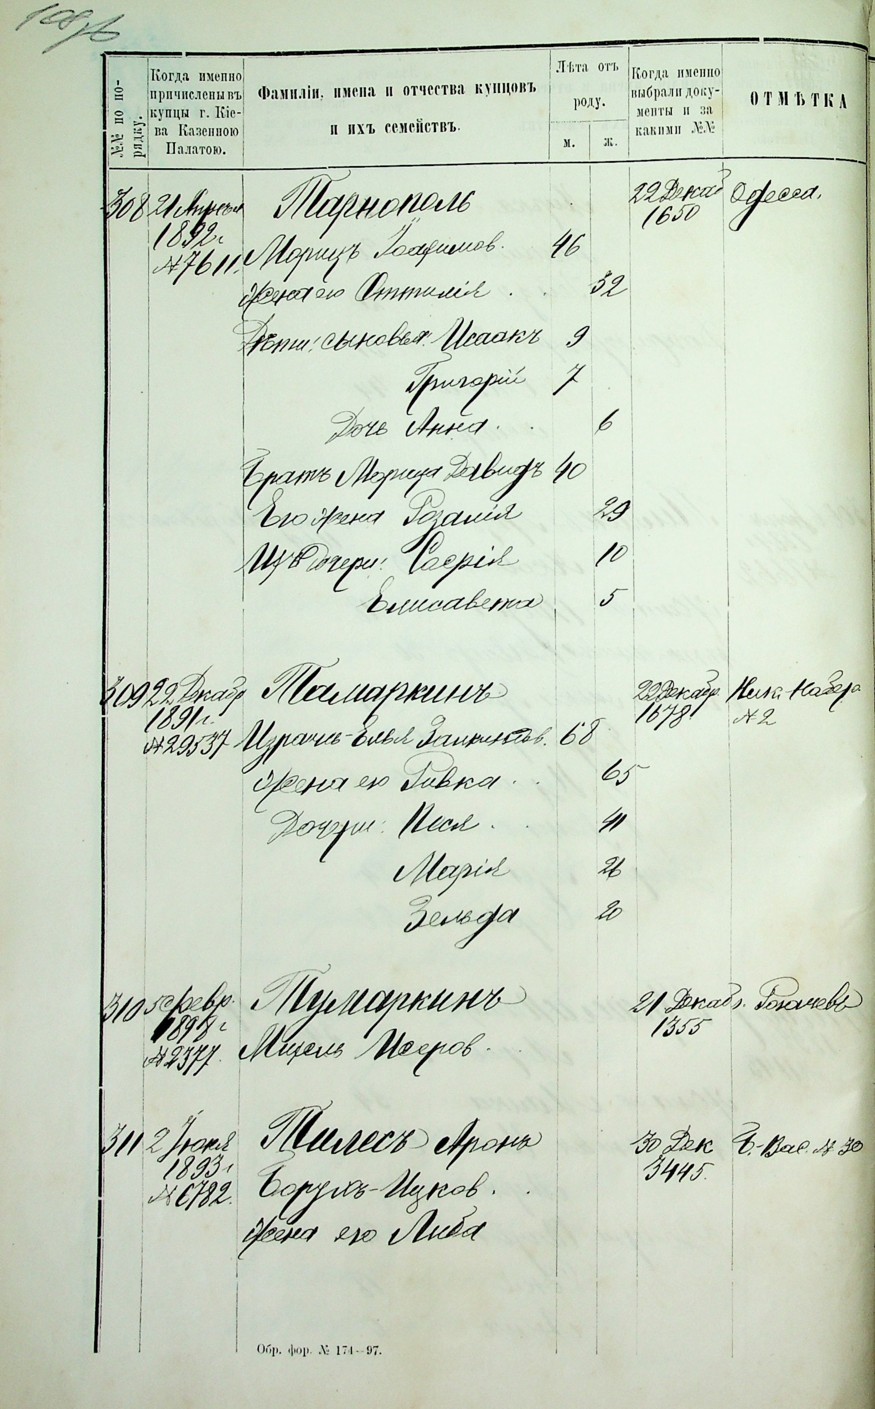 №№ по порядку.
Когда именно причислены въ купцы г. Кіева Казенною Палатою.
Фамиліи, имена и отчества купцовъ и ихъ семействъ.
Лѣта отъ роду.
м. ж.
Когда именно выбрали документы и за какими №№
ОТМѢТКА
308 21 Апрѣля Тарнополь 22 Декаб Одесса.
1892 г. 1650
№ 7611. Морицъ Іоахимов. 46
Жена его Оттилія . . 32
Дѣти: сыновья: Исаакъ 9
Григорій 7
Дочь Анна . . 6
Братъ Морица Давидъ 40
Его жена Розалія 29
Ихъ дочери: Софія 10
Елисавета 5
309 22 Декабр Тамаркинъ 22 Декабр. Ник.-Набер.
1891 г. 1678 № 2
№ 29537 Израиль-Элья Залкинов. 68
Жена его Ривка . . 65
Дочери: Песя . . 41
Марія 26
Зельда 20
310 5 Февр. Тумаркинъ 21 Декаб. Рогачевъ
1898 г. 1355
№ 2377. Михель Исеров . .
311 2 Іюня Тилесъ Аронъ 30 Дек Б.-Вас. № 30
1893 г. 3445.
№ 6782. Борухъ-Ицков . .
Жена его Либа
Обр. фор. № 174—97.